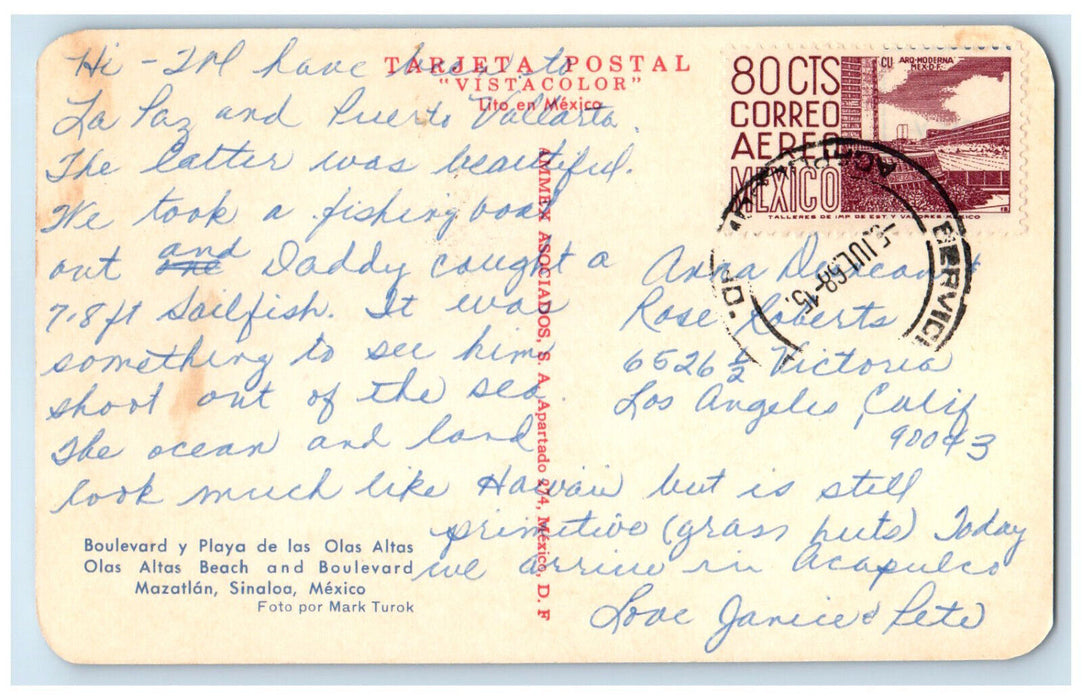 TARJETA POSTAL
"VISTACOLOR"
Lito en México
Hi - I'll have been to
La Paz and Puerto Vallarta.
The latter was beautiful.
We took a fishing boat
out one and Daddy caught a
7.8 ft Sailfish. It was
something to see him
shoot out of the sea.
The ocean and land
look much like Hawaii but is still
primitive (grass huts) Today
we arrive in Acapulco
Love Janice & Pete
Boulevard y Playa de las Olas Altas
Olas Altas Beach and Boulevard
Mazatlán, Sinaloa, México
Foto por Mark Turok
AMMEX ASOCIADOS, S. A. Apartado 274, México, D. F
80 CTS
CORREO
AEREO
MEXICO
CU ARQ-MODERNA
MEX-D.F.
TALLERES DE IMP. DE EST. Y VALORES MEXICO
5 JUL 68-15
Anna
Rose Roberts
6526 ½ Victoria
Los Angeles, Calif
90043